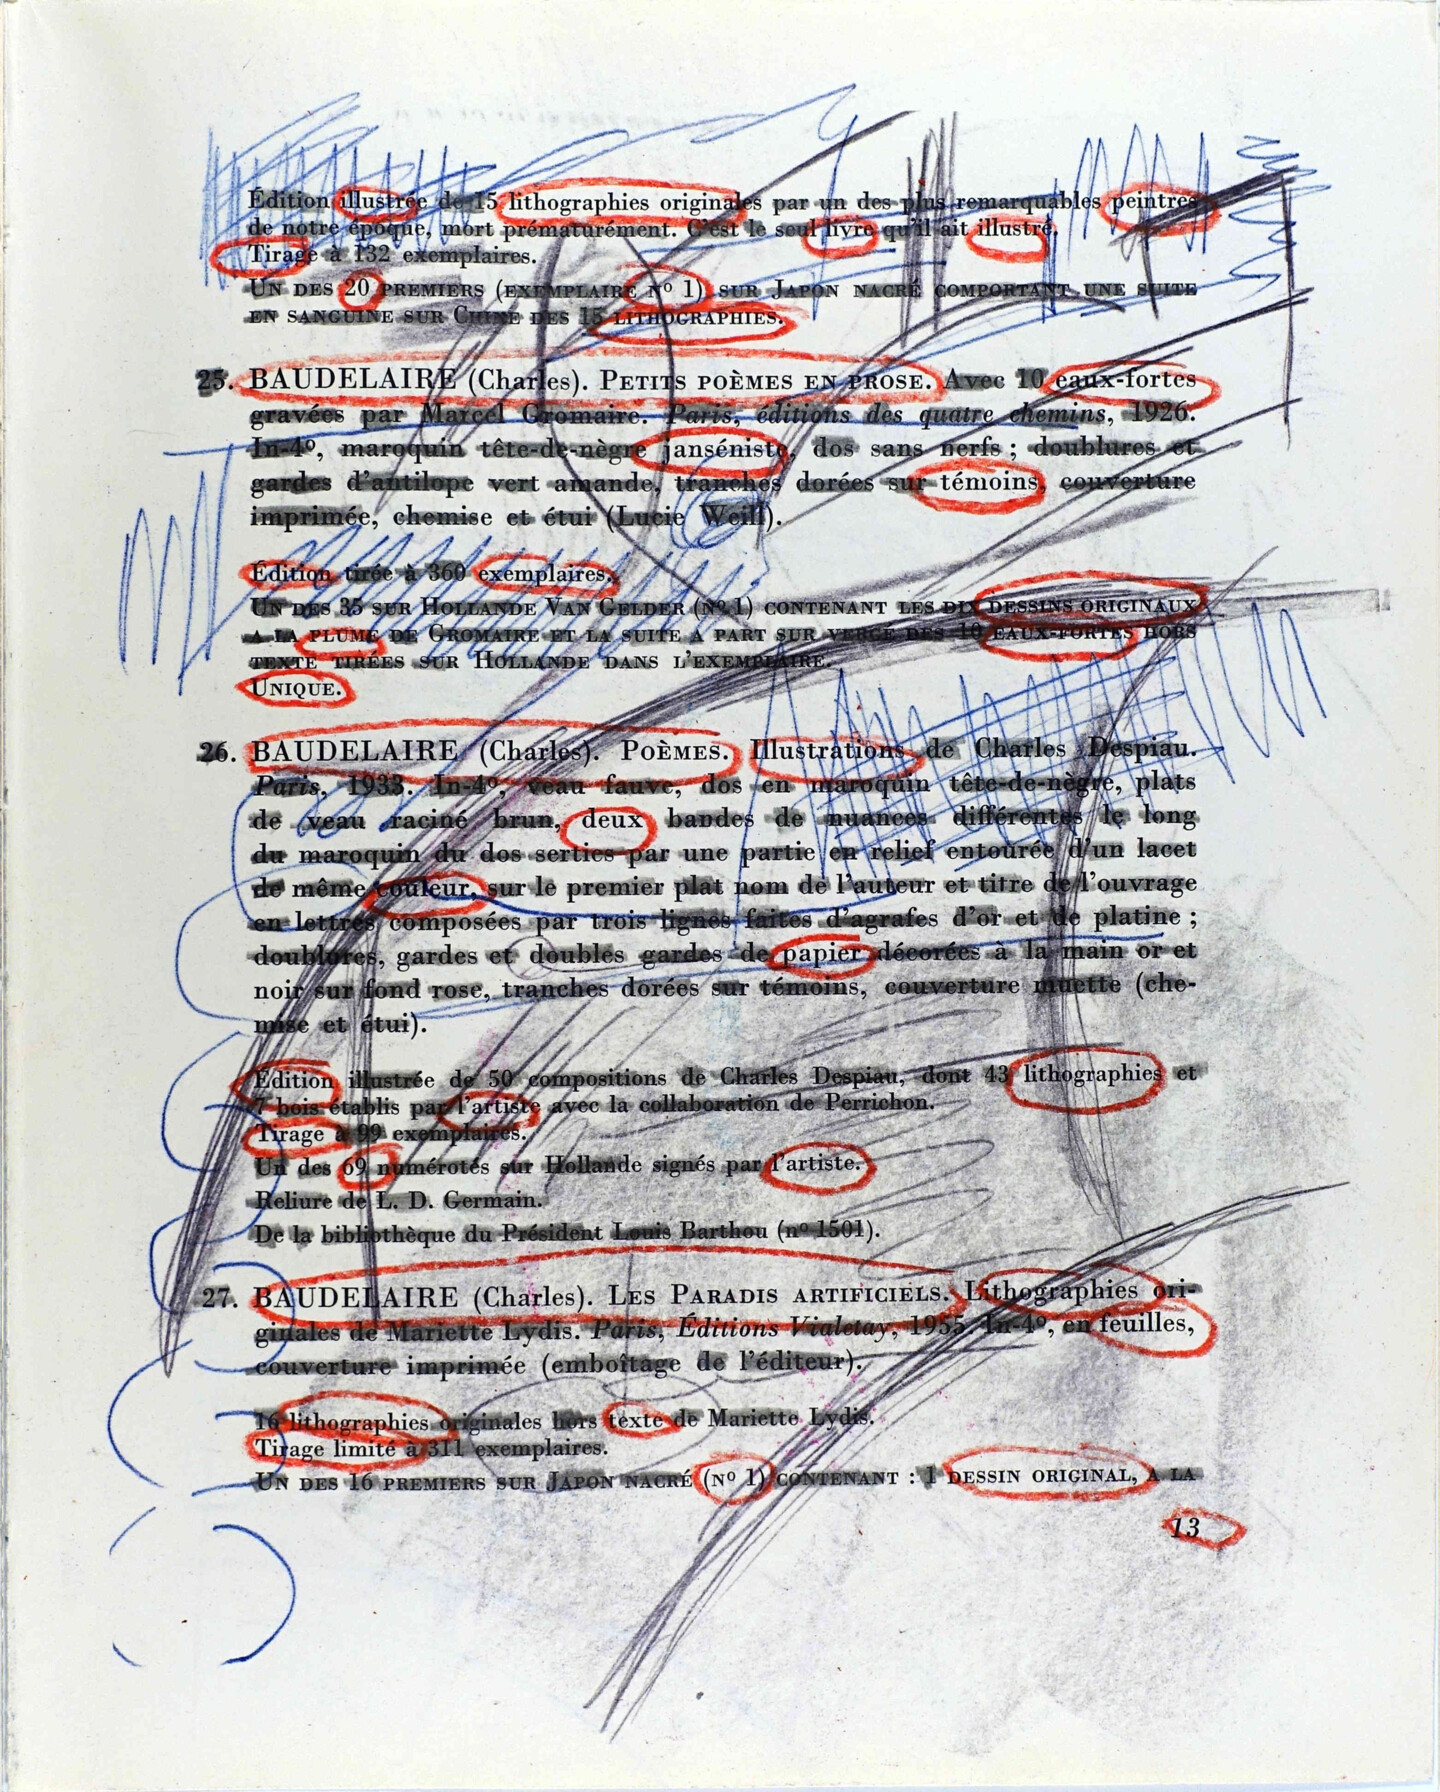 Édition illustrée de 15 lithographies originales par un des plus remarquables peintres
de notre époque, mort prématurément. C'est le seul livre qu'il ait illustré.
Tirage à 132 exemplaires.
UN DES 20 PREMIERS (EXEMPLAIRE Nº 1) SUR JAPON NACRÉ COMPORTANT UNE SUITE
EN SANGUINE SUR CHINE DES 15 LITHOGRAPHIES.
25. BAUDELAIRE (Charles). PETITS POÈMES EN PROSE. Avec 10 eaux-fortes
gravées par Marcel Gromaire. Paris, éditions des quatre chemins, 1926.
In-4º, maroquin tête-de-nègre janséniste, dos sans nerfs ; doublures et
gardes d'antilope vert amande, tranches dorées sur témoins, couverture
imprimée, chemise et étui (Lucie Weill).
Édition tirée à 360 exemplaires.
UN DES 35 SUR HOLLANDE VAN GELDER (Nº 1) CONTENANT LES DIX DESSINS ORIGINAUX
A LA PLUME DE GROMAIRE ET LA SUITE A PART SUR VERGÉ DES 10 EAUX-FORTES HORS
TEXTE TIRÉES SUR HOLLANDE DANS L'EXEMPLAIRE.
UNIQUE.
26. BAUDELAIRE (Charles). POÈMES. Illustrations de Charles Despiau.
Paris, 1933. In-4º, veau fauve, dos en maroquin tête-de-nègre, plats
de veau raciné brun, deux bandes de nuances différentes le long
du maroquin du dos serties par une partie en relief entourée d'un lacet
de même couleur, sur le premier plat nom de l'auteur et titre de l'ouvrage
en lettres composées par trois lignes faites d'agrafes d'or et de platine ;
doublures, gardes et doubles gardes de papier décorées à la main or et
noir sur fond rose, tranches dorées sur témoins, couverture muette (che-
mise et étui).
Édition illustrée de 50 compositions de Charles Despiau, dont 43 lithographies et
7 bois établis par l'artiste avec la collaboration de Perrichon.
Tirage à 99 exemplaires.
Un des 69 numérotés sur Hollande signés par l'artiste.
Reliure de L. D. Germain.
De la bibliothèque du Président Louis Barthou (nº 1501).
27. BAUDELAIRE (Charles). LES PARADIS ARTIFICIELS. Lithographies ori-
ginales de Mariette Lydis. Paris, Éditions Vialetay, 1955. In-4º, en feuilles,
couverture imprimée (emboîtage de l'éditeur).
16 lithographies originales hors texte de Mariette Lydis.
Tirage limité à 311 exemplaires.
UN DES 16 PREMIERS SUR JAPON NACRÉ (Nº 1) CONTENANT : 1 DESSIN ORIGINAL, A LA
13